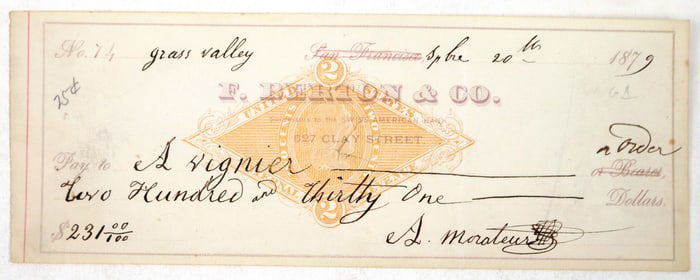 No. 74 grass valley San Francisco Spbre 20th 1879
25¢
F. BERTON & CO.
2
UNITED STATES
Successors to the SWISS AMERICAN BANK
527 CLAY STREET.
or order
Pay to A Vignier or Bearer,
Two Hundred and Thirty One Dollars.
2
$231 00/100
A. Morateur